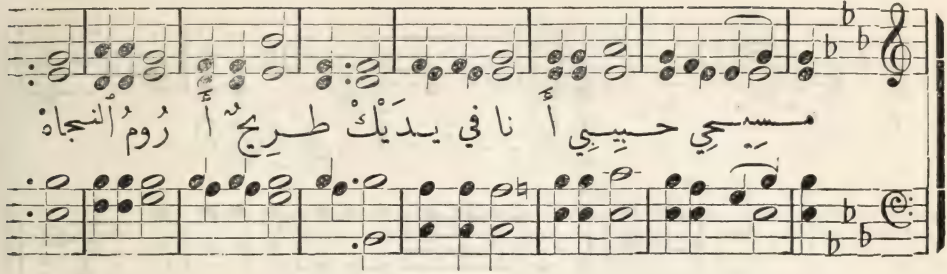 مسِيحِي حبِيبِي أَنا في يدَيْكْ طرِيحٌ أَرُومُ ٱلنجاهْ